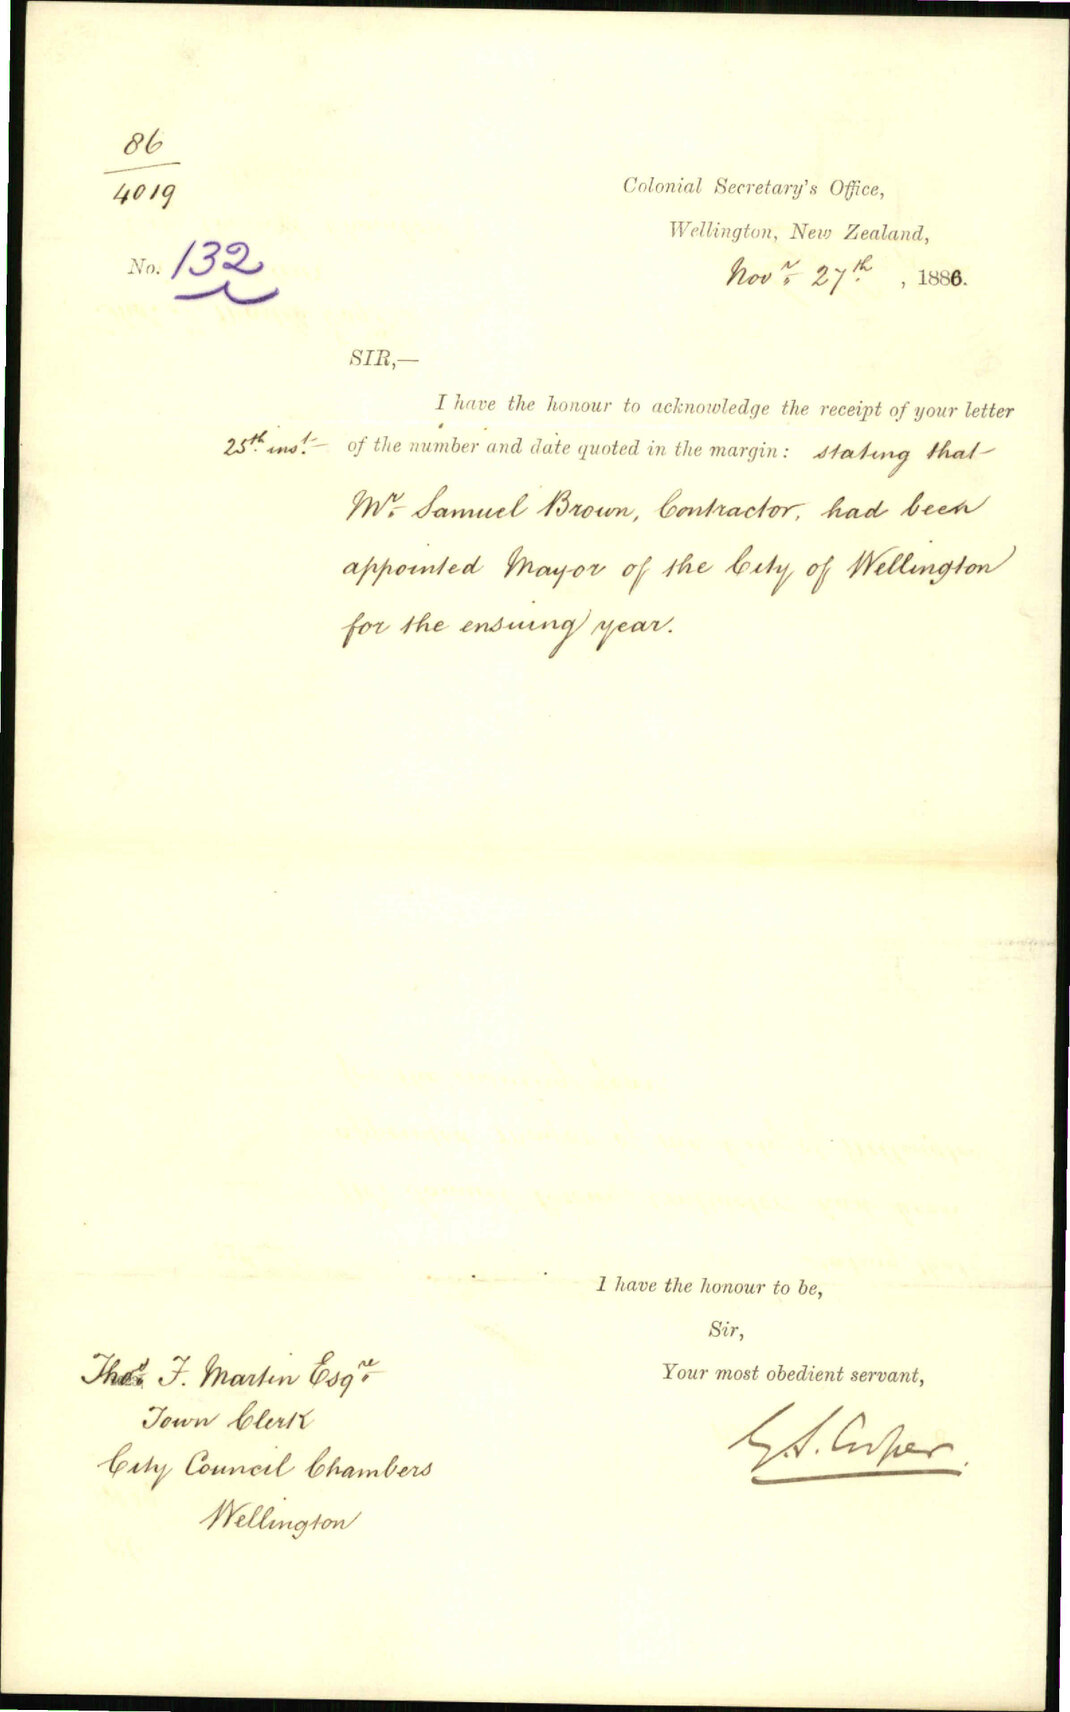 86
4019
Colonial Secretary's Office,
Wellington, New Zealand,
No. 132
Novr 27th, 1886.
SIR,—
I have the honour to acknowledge the receipt of your letter
25th inst. of the number and date quoted in the margin: stating that
Mr. Samuel Brown, Contractor, had been
appointed Mayor of the City of Wellington
for the ensuing year.
I have the honour to be,
Sir,
Your most obedient servant,
G. S. Cooper.
Thos. F. Martin Esqre
Town Clerk
City Council Chambers
Wellington